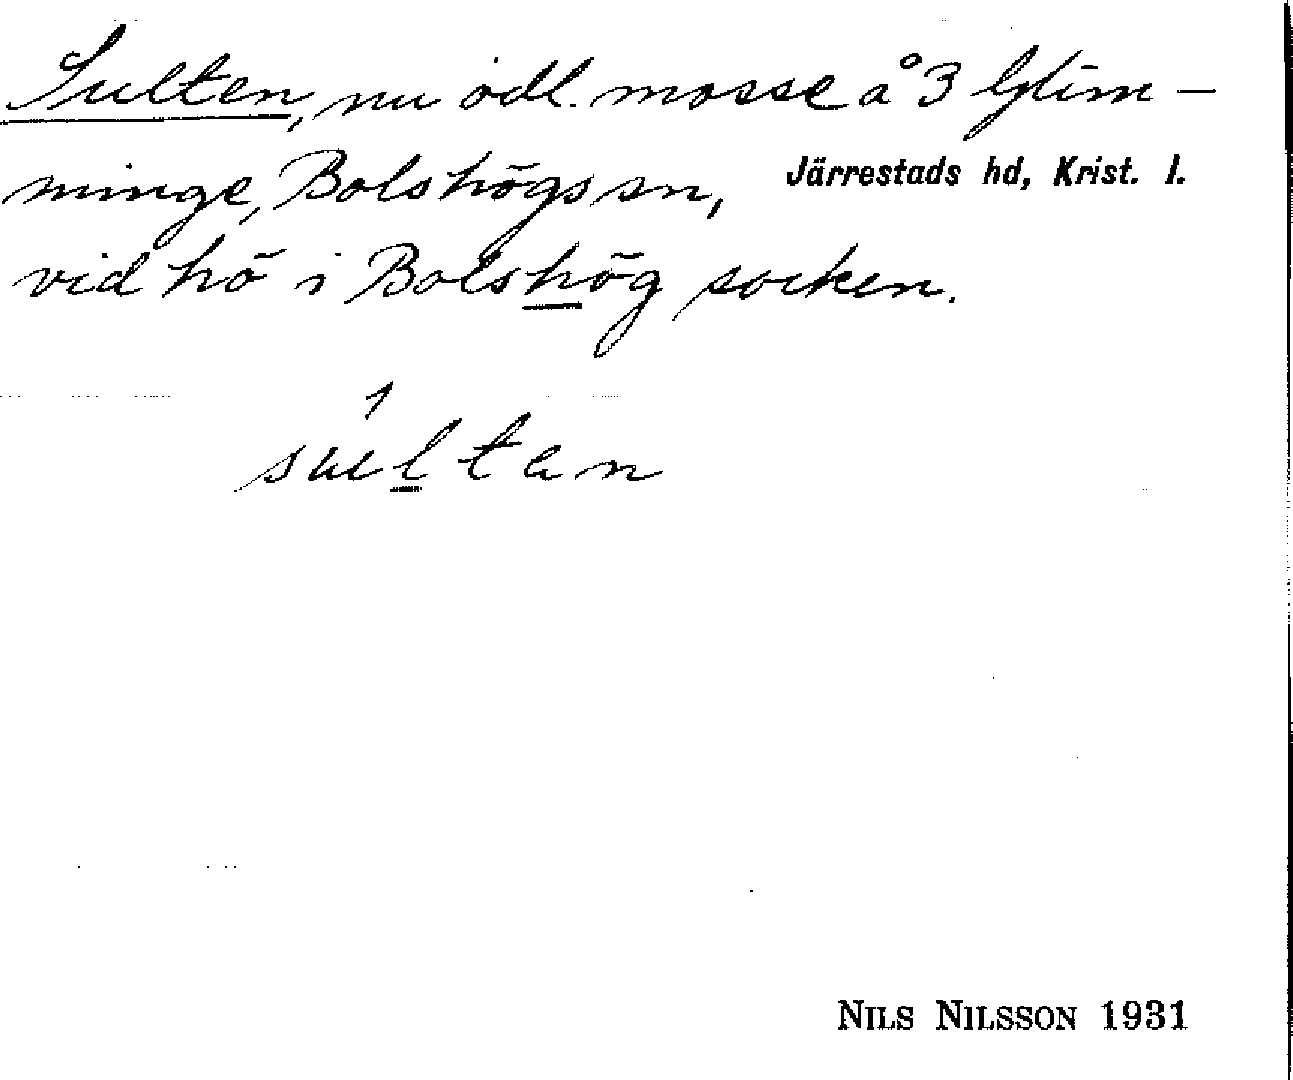 Sulten, nu odl. mosse å 3 Glim-
minge, Bolshögs sn, Järrestads hd, Krist. l.
vid hö i Bolshög socken.
1
sueltan
NILS NILSSON 1931